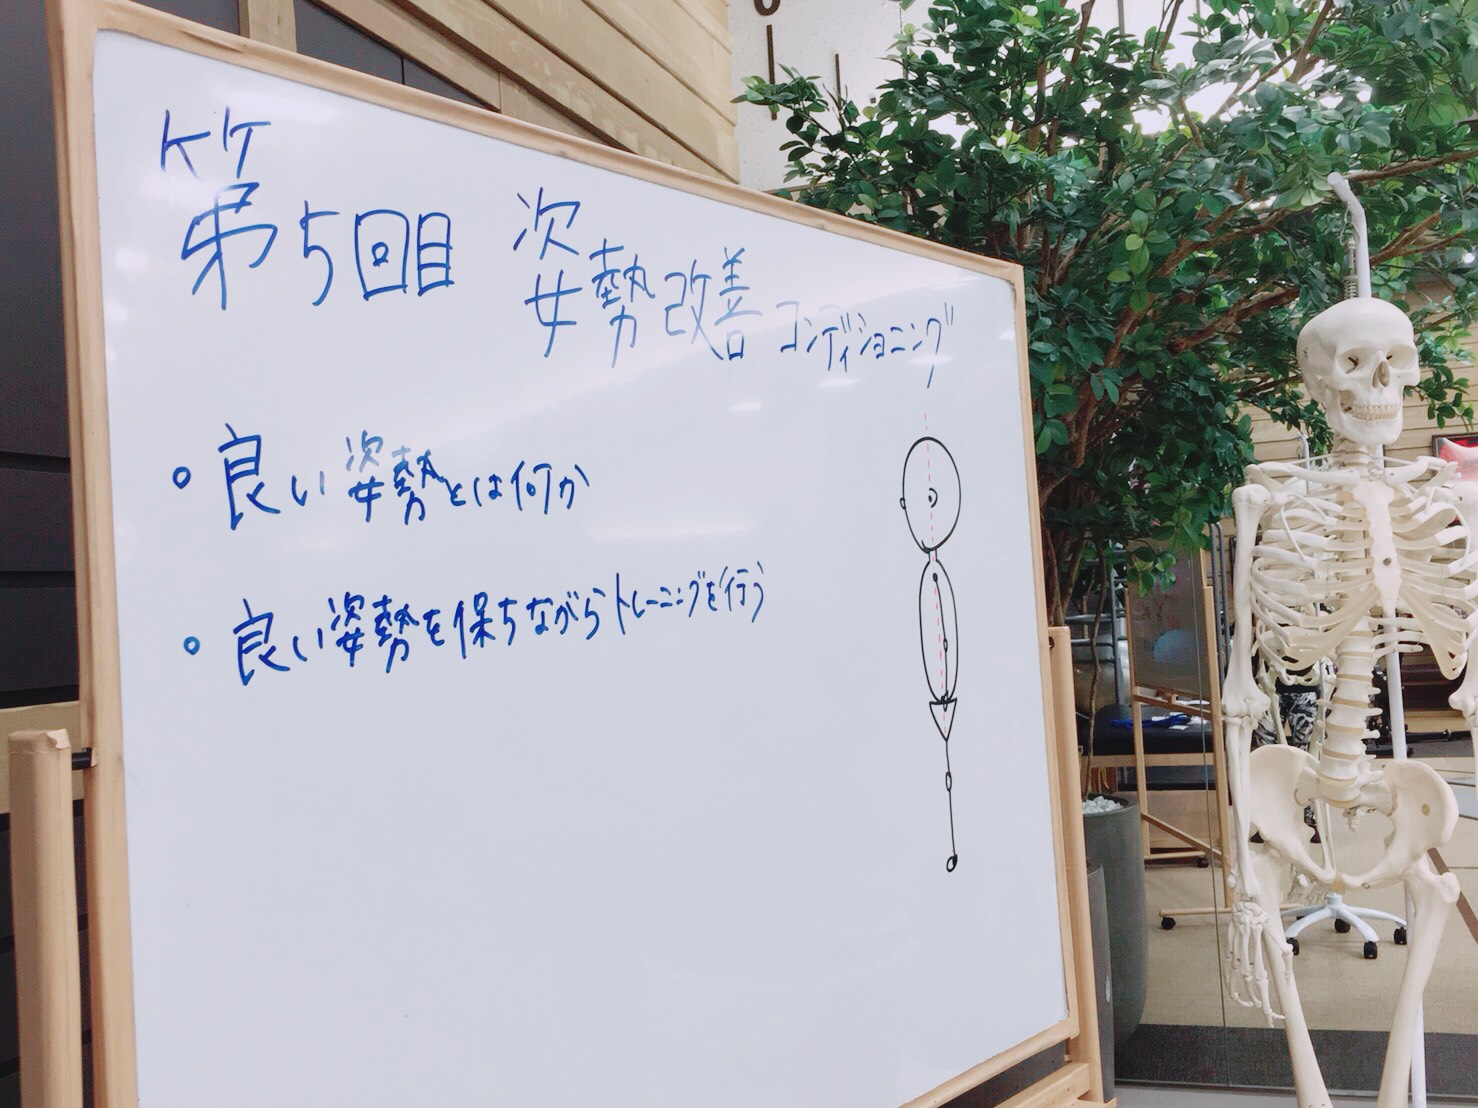 第5回目 姿勢改善コンディショニング
・良い姿勢とは何か
・良い姿勢を保ちながらトレーニングを行う